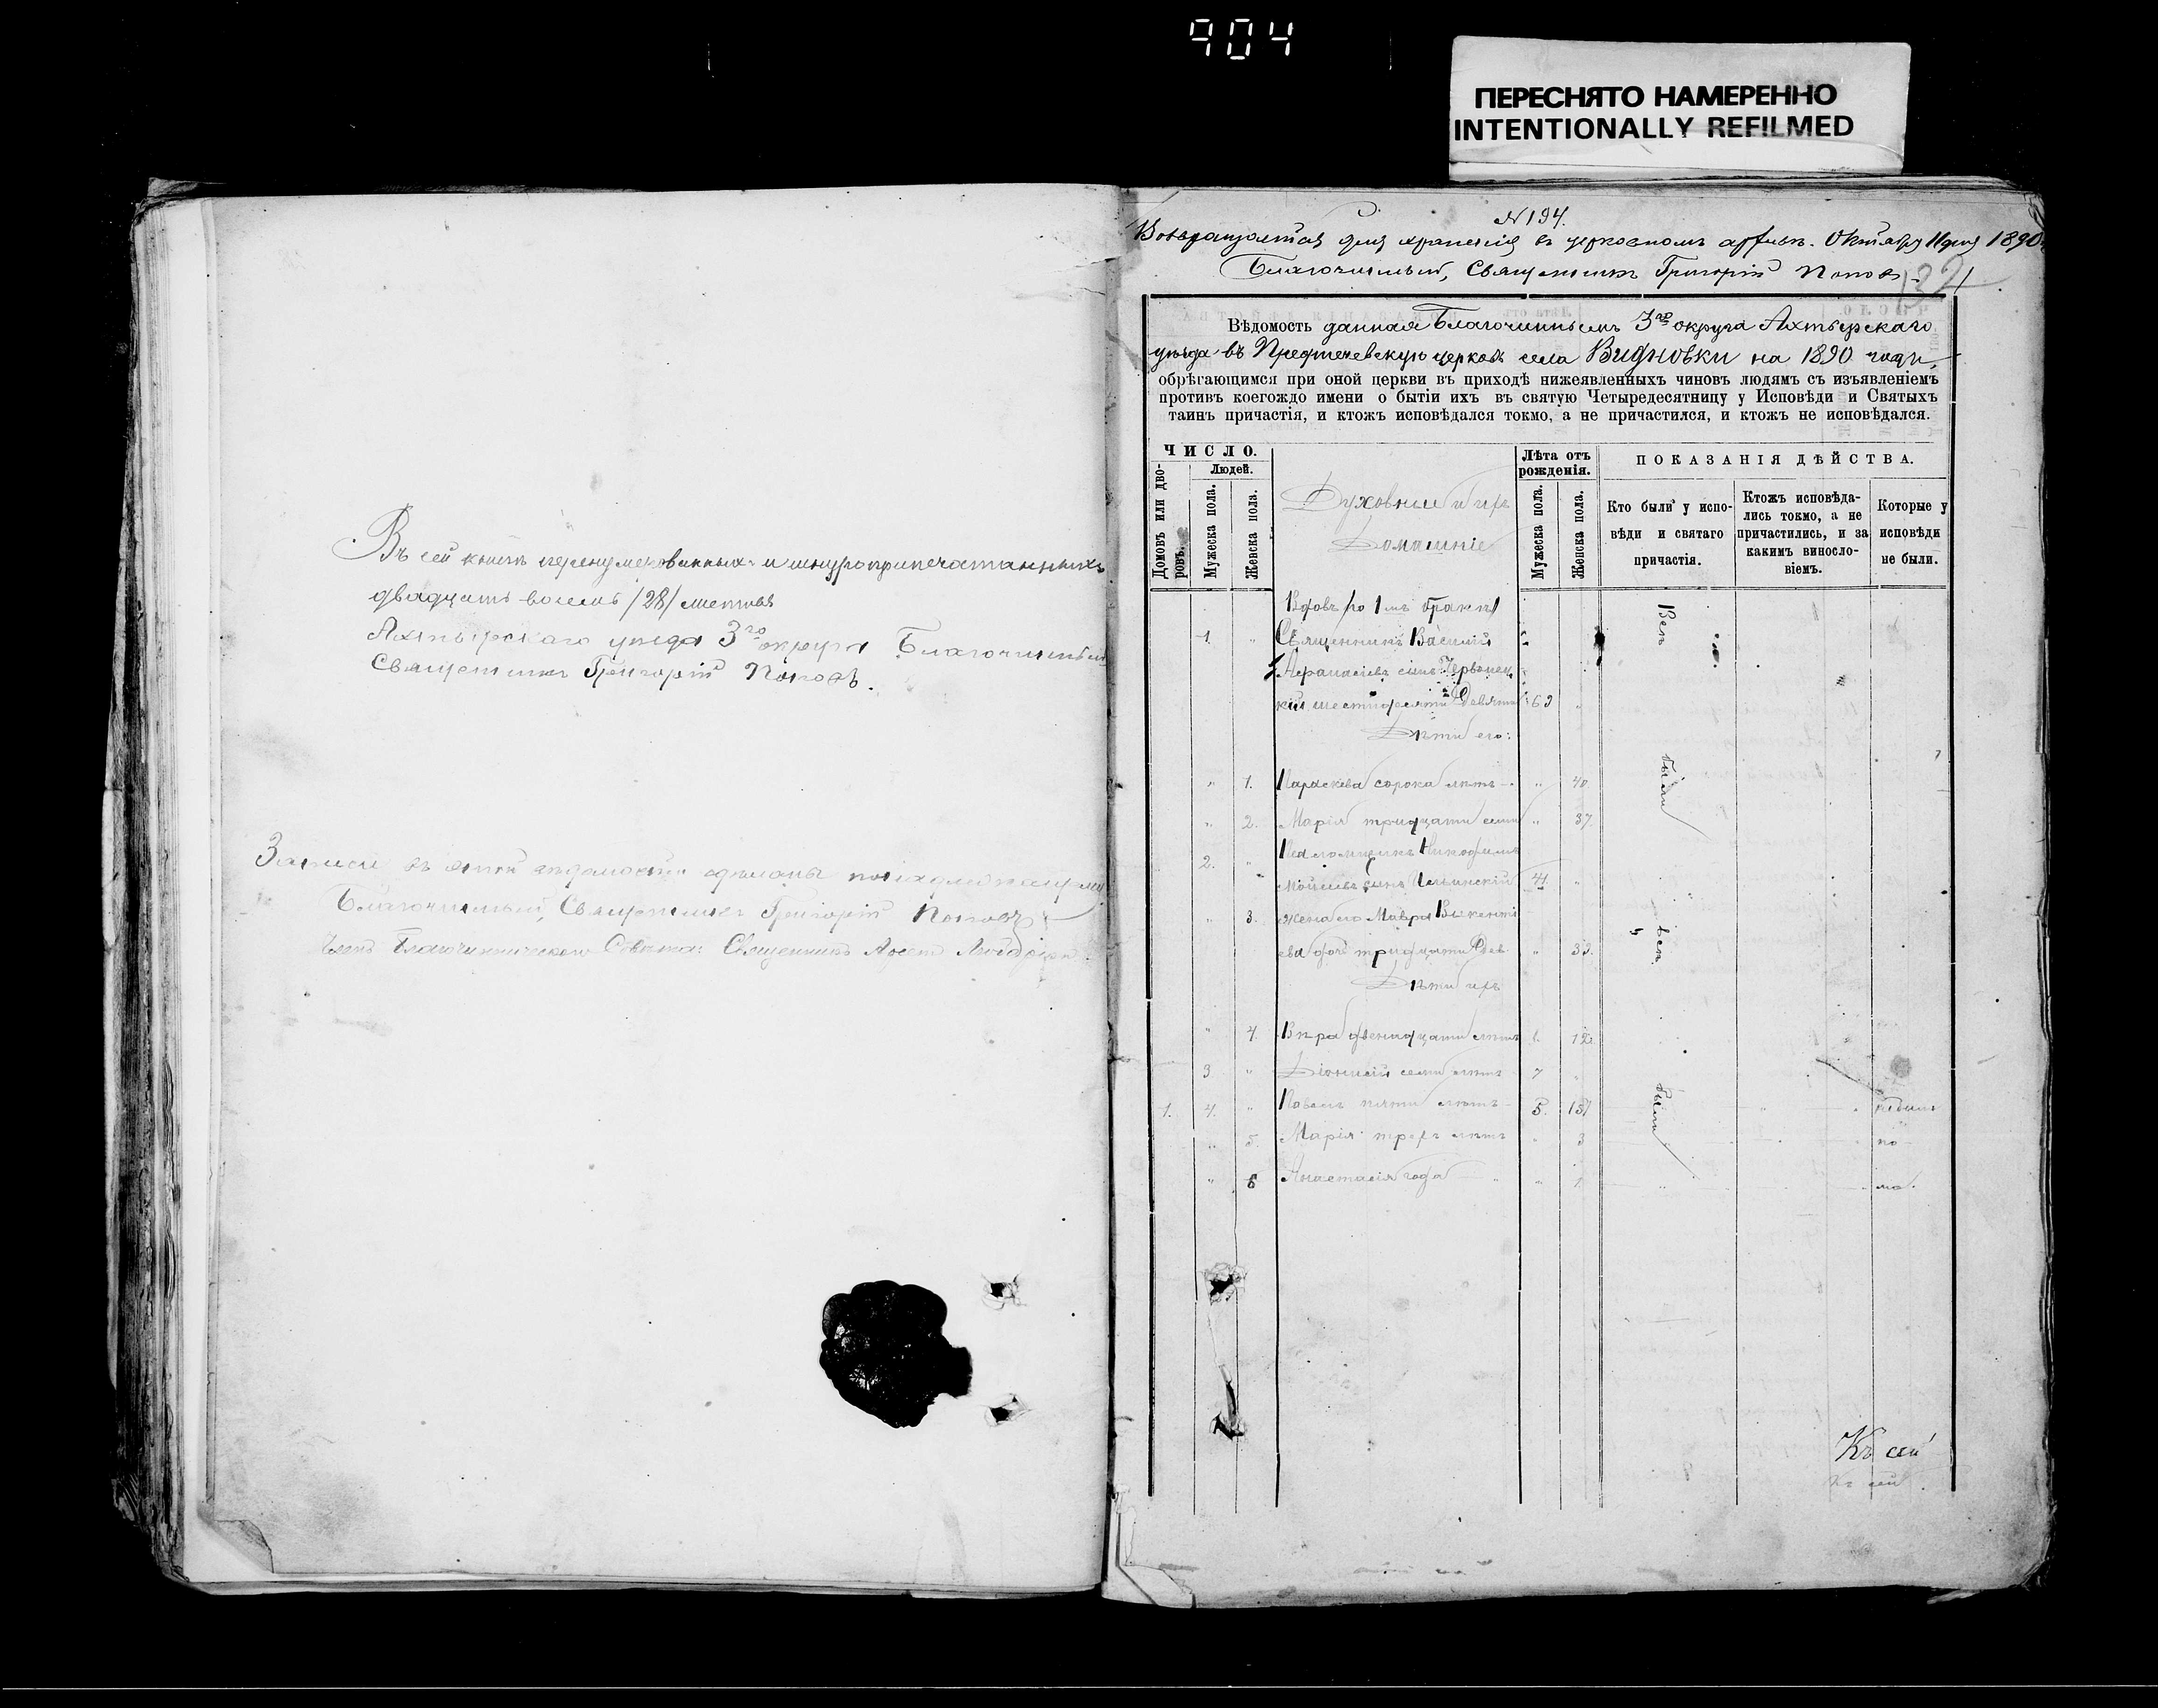 904
ПЕРЕСНЯТО НАМЕРЕННО
INTENTIONALLY REFILMED
Въ сей книгѣ перенумерованныхъ и шнуроприпечатанныхъ
двадцать восемь /28/ листовъ
Ахтырскаго уѣзда 3го округа Благочинный
Священникъ Григорій Поповъ.
Записи въ этой вѣдомости сдѣланы
Благочинный, Священникъ Григорій Поповъ
Членъ Благочинническаго Совѣта: Священникъ
№ 194.
Возвращается для храненія въ церковномъ архивѣ. Октября 11 дня 1890
Благочинный, Священникъ Григорій Поповъ
Вѣдомость данная Благочиннымъ 3го округа Ахтырскаго
уѣзда въ Предтечевскую церковь села Видновки на 1890 годъ,
обрѣгающимся при оной церкви въ приходѣ нижеявленныхъ чиновъ людямъ съ изъявленіемъ
противъ коегождо имени о бытіи ихъ въ святую Четыредесятницу у Исповѣди и Святыхъ
таинъ причастія, и ктожъ исповѣдался токмо, а не причастился, и ктожъ не исповѣдался.
ЧИСЛО.
Домовъ или дворовъ.
Людей.
Мужеска пола.
Женска пола.
Духовные и ихъ
Домашніе
Лѣта отъ рожденія.
Мужеска пола.
Женска пола.
ПОКАЗАНІЯ ДѢЙСТВА.
Кто были у исповѣди и святаго причастія.
Ктожъ исповѣдались токмо, а не причастились, и за какимъ винословіемъ.
Которые у исповѣди не были.
Вдовъ по 1мъ бракѣ
1. Священникъ Василій
Аѳанасіевъ сынъ
кій шестидесяти девяти 69
Дѣти его:
1. Параскева сорока лѣтъ 40
2. Марія тридцати семи 37.
2. Псаломщикъ
сынъ 41
3. Жена его Мавра Викенті
ева дочь тридцати
Дѣти ихъ
4. Вѣра двенадцати лѣтъ 12.
3 Діонисій семи лѣтъ 7
1. 4. Павелъ пяти лѣтъ 5.
5. Марія трехъ лѣтъ 3
6 Анастасія года 1
Всѣ
были
всѣ
были
Къ сей
Къ сей